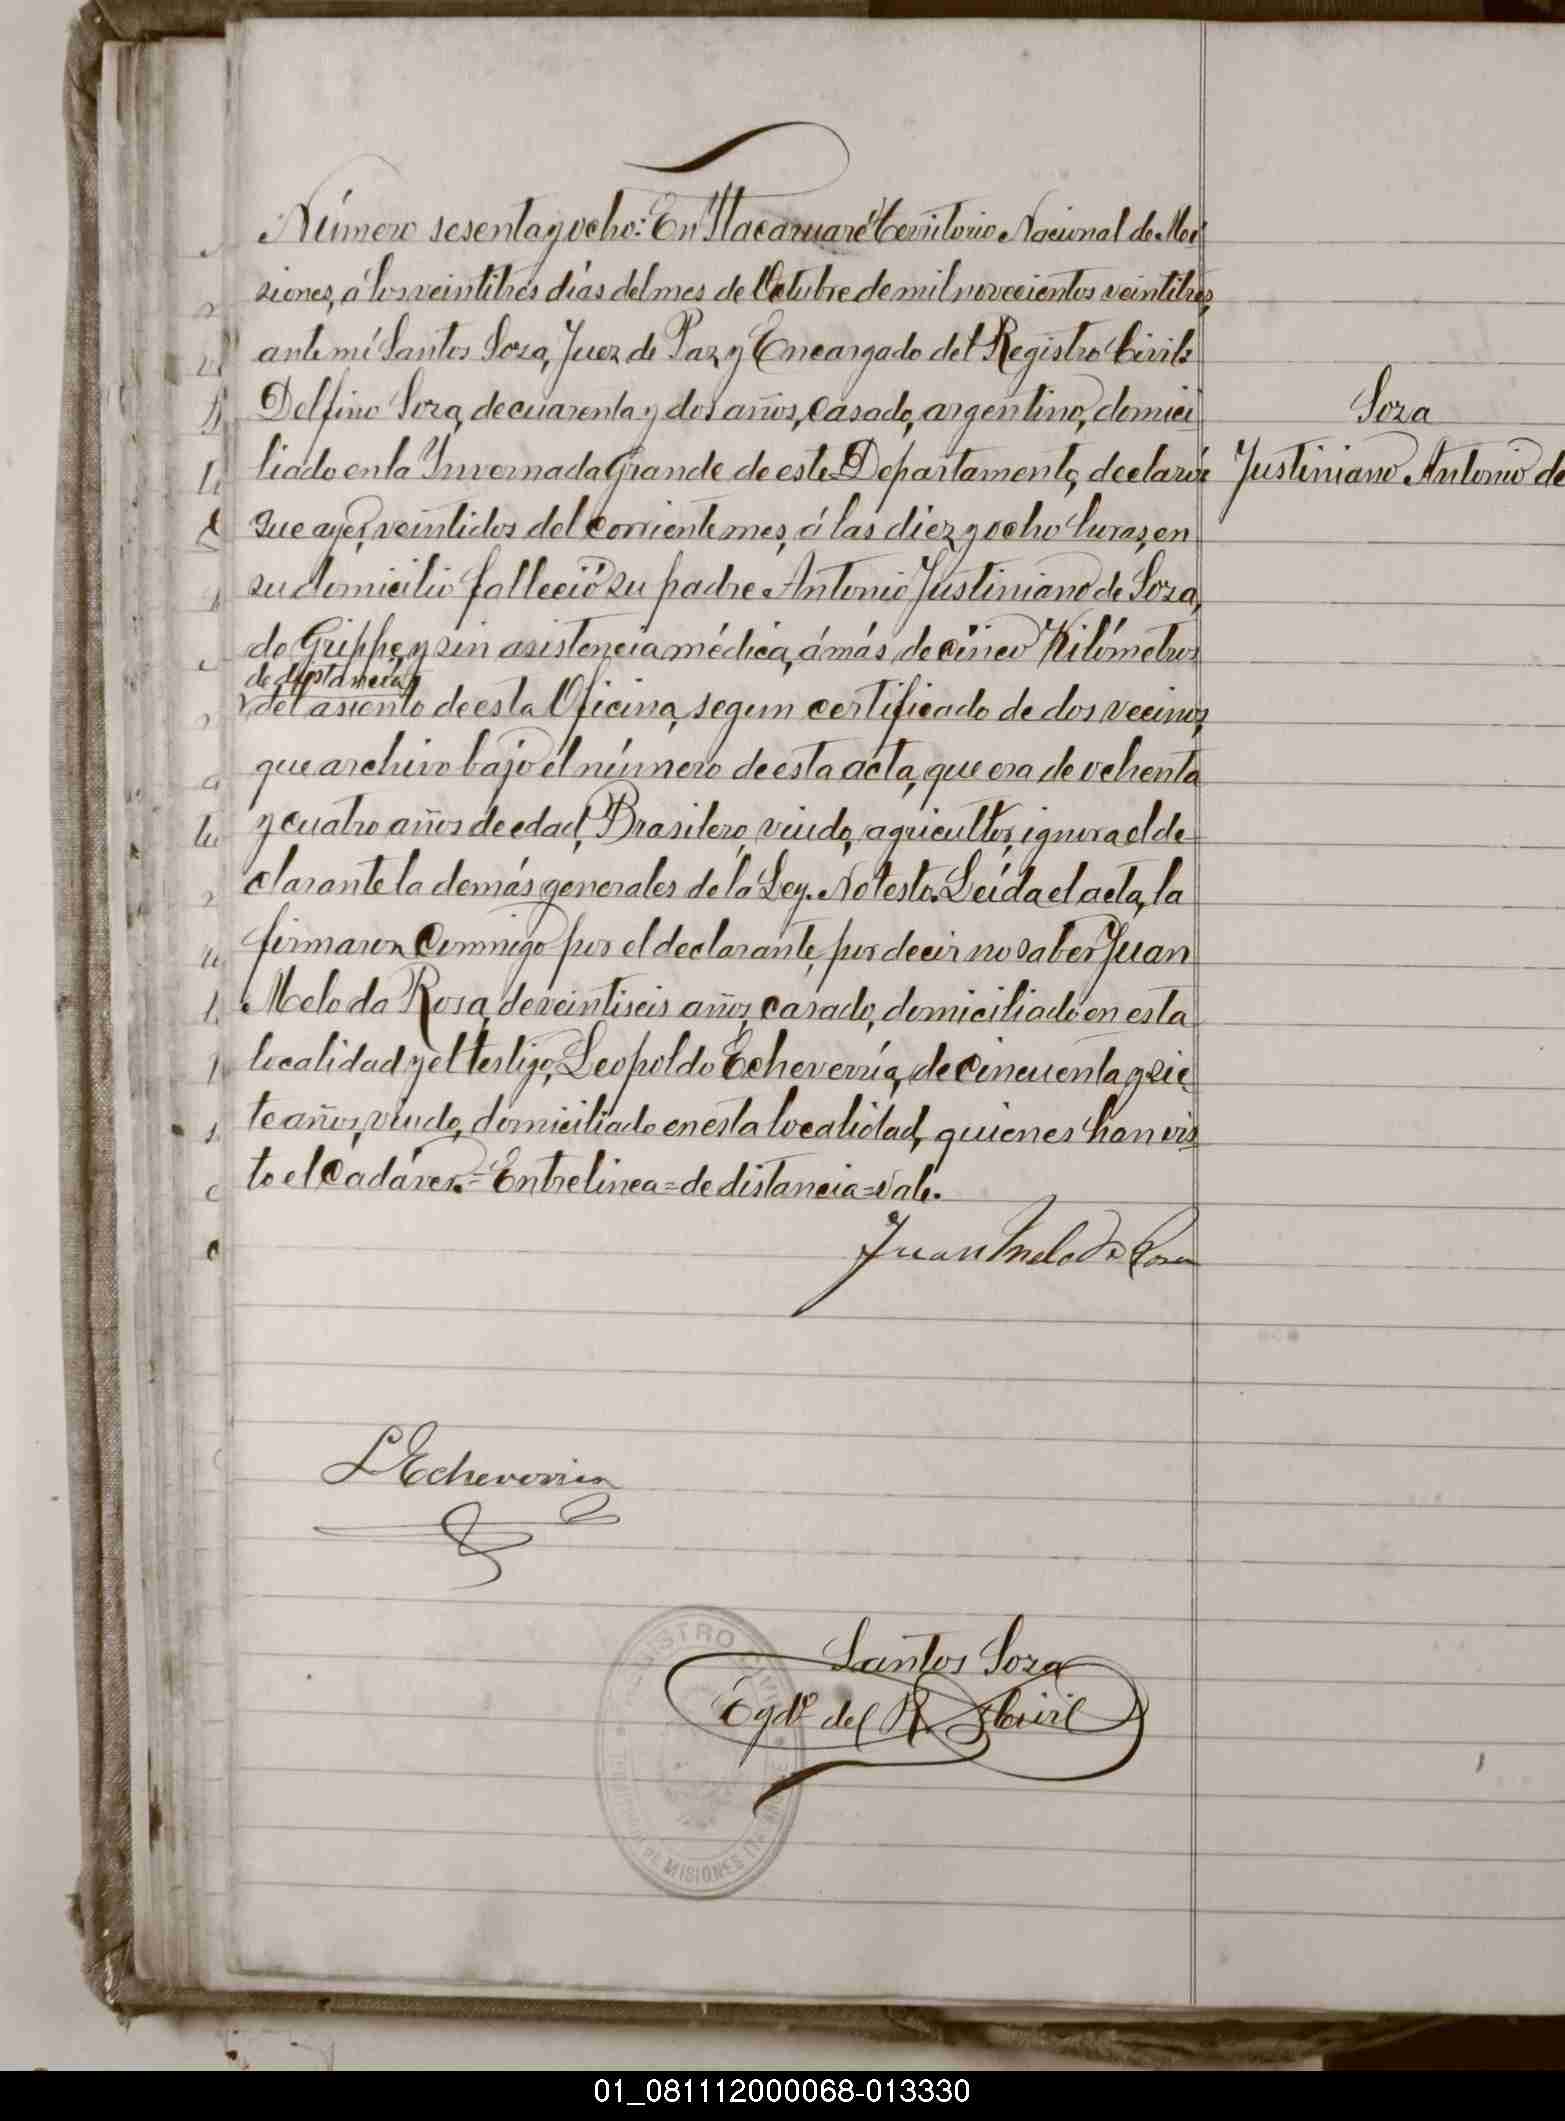 Número sesenta y ocho: En Itacaruaré Territorio Nacional de Mi-
siones, á los veintitres días del mes de Octubre de mil novecientos veintitres,
ante mí Santos Soza, Juez de Paz y Encargado del Registro Civil:
Delfino Soza, de cuarenta y dos años, casado, argentino, domici
Soza
liado en la Invernada Grande de este Departamento, declaró:
Justiniano Antonio de
Que ayer, veintidos del corriente mes, á las diez y ocho horas, en
su domicilio falleció su padre Antonio Justiniano de Soza,
de Grippe, y sin asistencia médica, á más de cinco Kilómetros
de distancia,
del asiento de esta Oficina, segun certificado de dos vecinos,
que archivo bajo el número de esta acta, que era de ochenta
y cuatro años de edad, Brasilero, viudo, agricultor, ignora el de-
clarante la demás generales de la Ley. No testó. Leída el acta, la
firmaron conmigo por el declarante, por decir no saber Juan
Melo da Rosa, de veintiseis años, casado, domiciliado en esta
localidad y el testigo, Leopoldo Echeverría, de cincuenta y sie-
te años, viudo, domiciliado en esta localidad, quienes han vis
to el cadáver.=Entrelinea=de distancia=vale.
Juan Melo da Rosa
L Echeverria
Santos Soza
Egdo. del R. Civil
REGISTRO CIVIL
TERRITORIO DE MISIONES
01_081112000068-013330